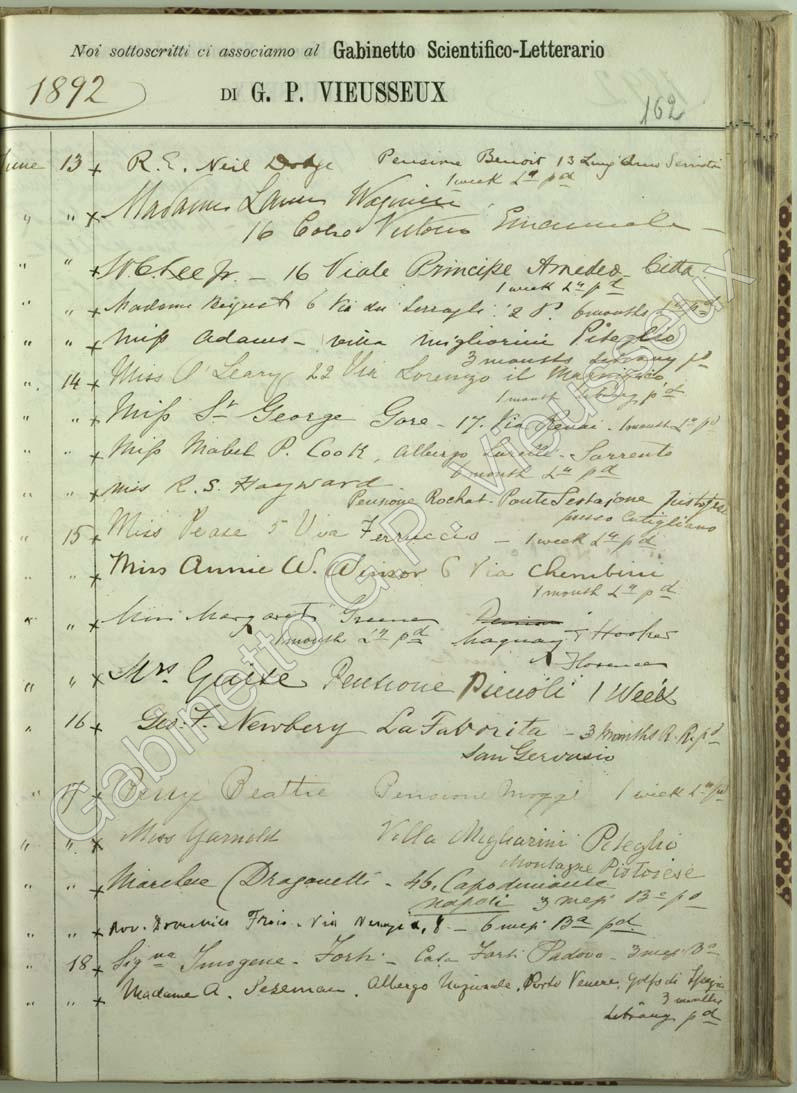 Noi sottoscritti ci associamo al Gabinetto Scientifico-Letterario
1892
DI G. P. VIEUSSEUX
162
June 13 x R. E. Neil Dodge Pensione Benoit 13 Lung'Arno Serristori
1 week Ly pd
" " x Madame Laura
16 Corso Vittorio Emanuele
" " x W. C. Lee Jr. - 16 Viale Principe Amedeo Citta
1 week Ly pd
" " x Madame 6 Via dei Serragli 2 P. 6 months Ly pd
" " x Miss Adams - villa migliorini Piteglio
3 months Library pd
" 14 x Miss O'Leary 22 Via Lorenzo il Magnifico
1 month Library p'd
" " x Miss St George Gore - 17. Via 1 month Ly pd
" " x Miss Mabel P. Cook, Albergo Sorrento
1 month Ly pd
" " x Miss R. S. Hayward
Pensione Rochat. Ponte Sestajone
presso Cutigliano
" 15 x Miss Pease 5 Via Ferruccio - 1 week Ly pd
" " x Miss Annie W. Winsor 6 Via Cherubini
1 month Ly pd
" " x Miss Margaret Greene
1 month Ly pd Maquay & Hooker
Florence
" " x Mrs. Guise Pensione Piccioli 1 Week
" 16 x Geo. F. Newbery La Favorita - 3 Months R. R. pd
San Gervasio
" 17 x Percy Beattie Pensione 1 week Ly pd
" " x Miss Garnold Villa Migliarini Piteglio
Montagne Pistoiese
" " x Dragonetti - 46, Capodimonte
Napoli 3 mesi Ba pd
" " x Avv. Via 8 - 6 mesi Ba pd.
" 18 x Signa Imogene Forti - Casa Forti Padova - 3 mesi Ba
" " x Madame A. Albergo Nazionale, Porto Venere, Golfo di Spezia
3 months
Library pd
Gabinetto G.P. Vieusseux